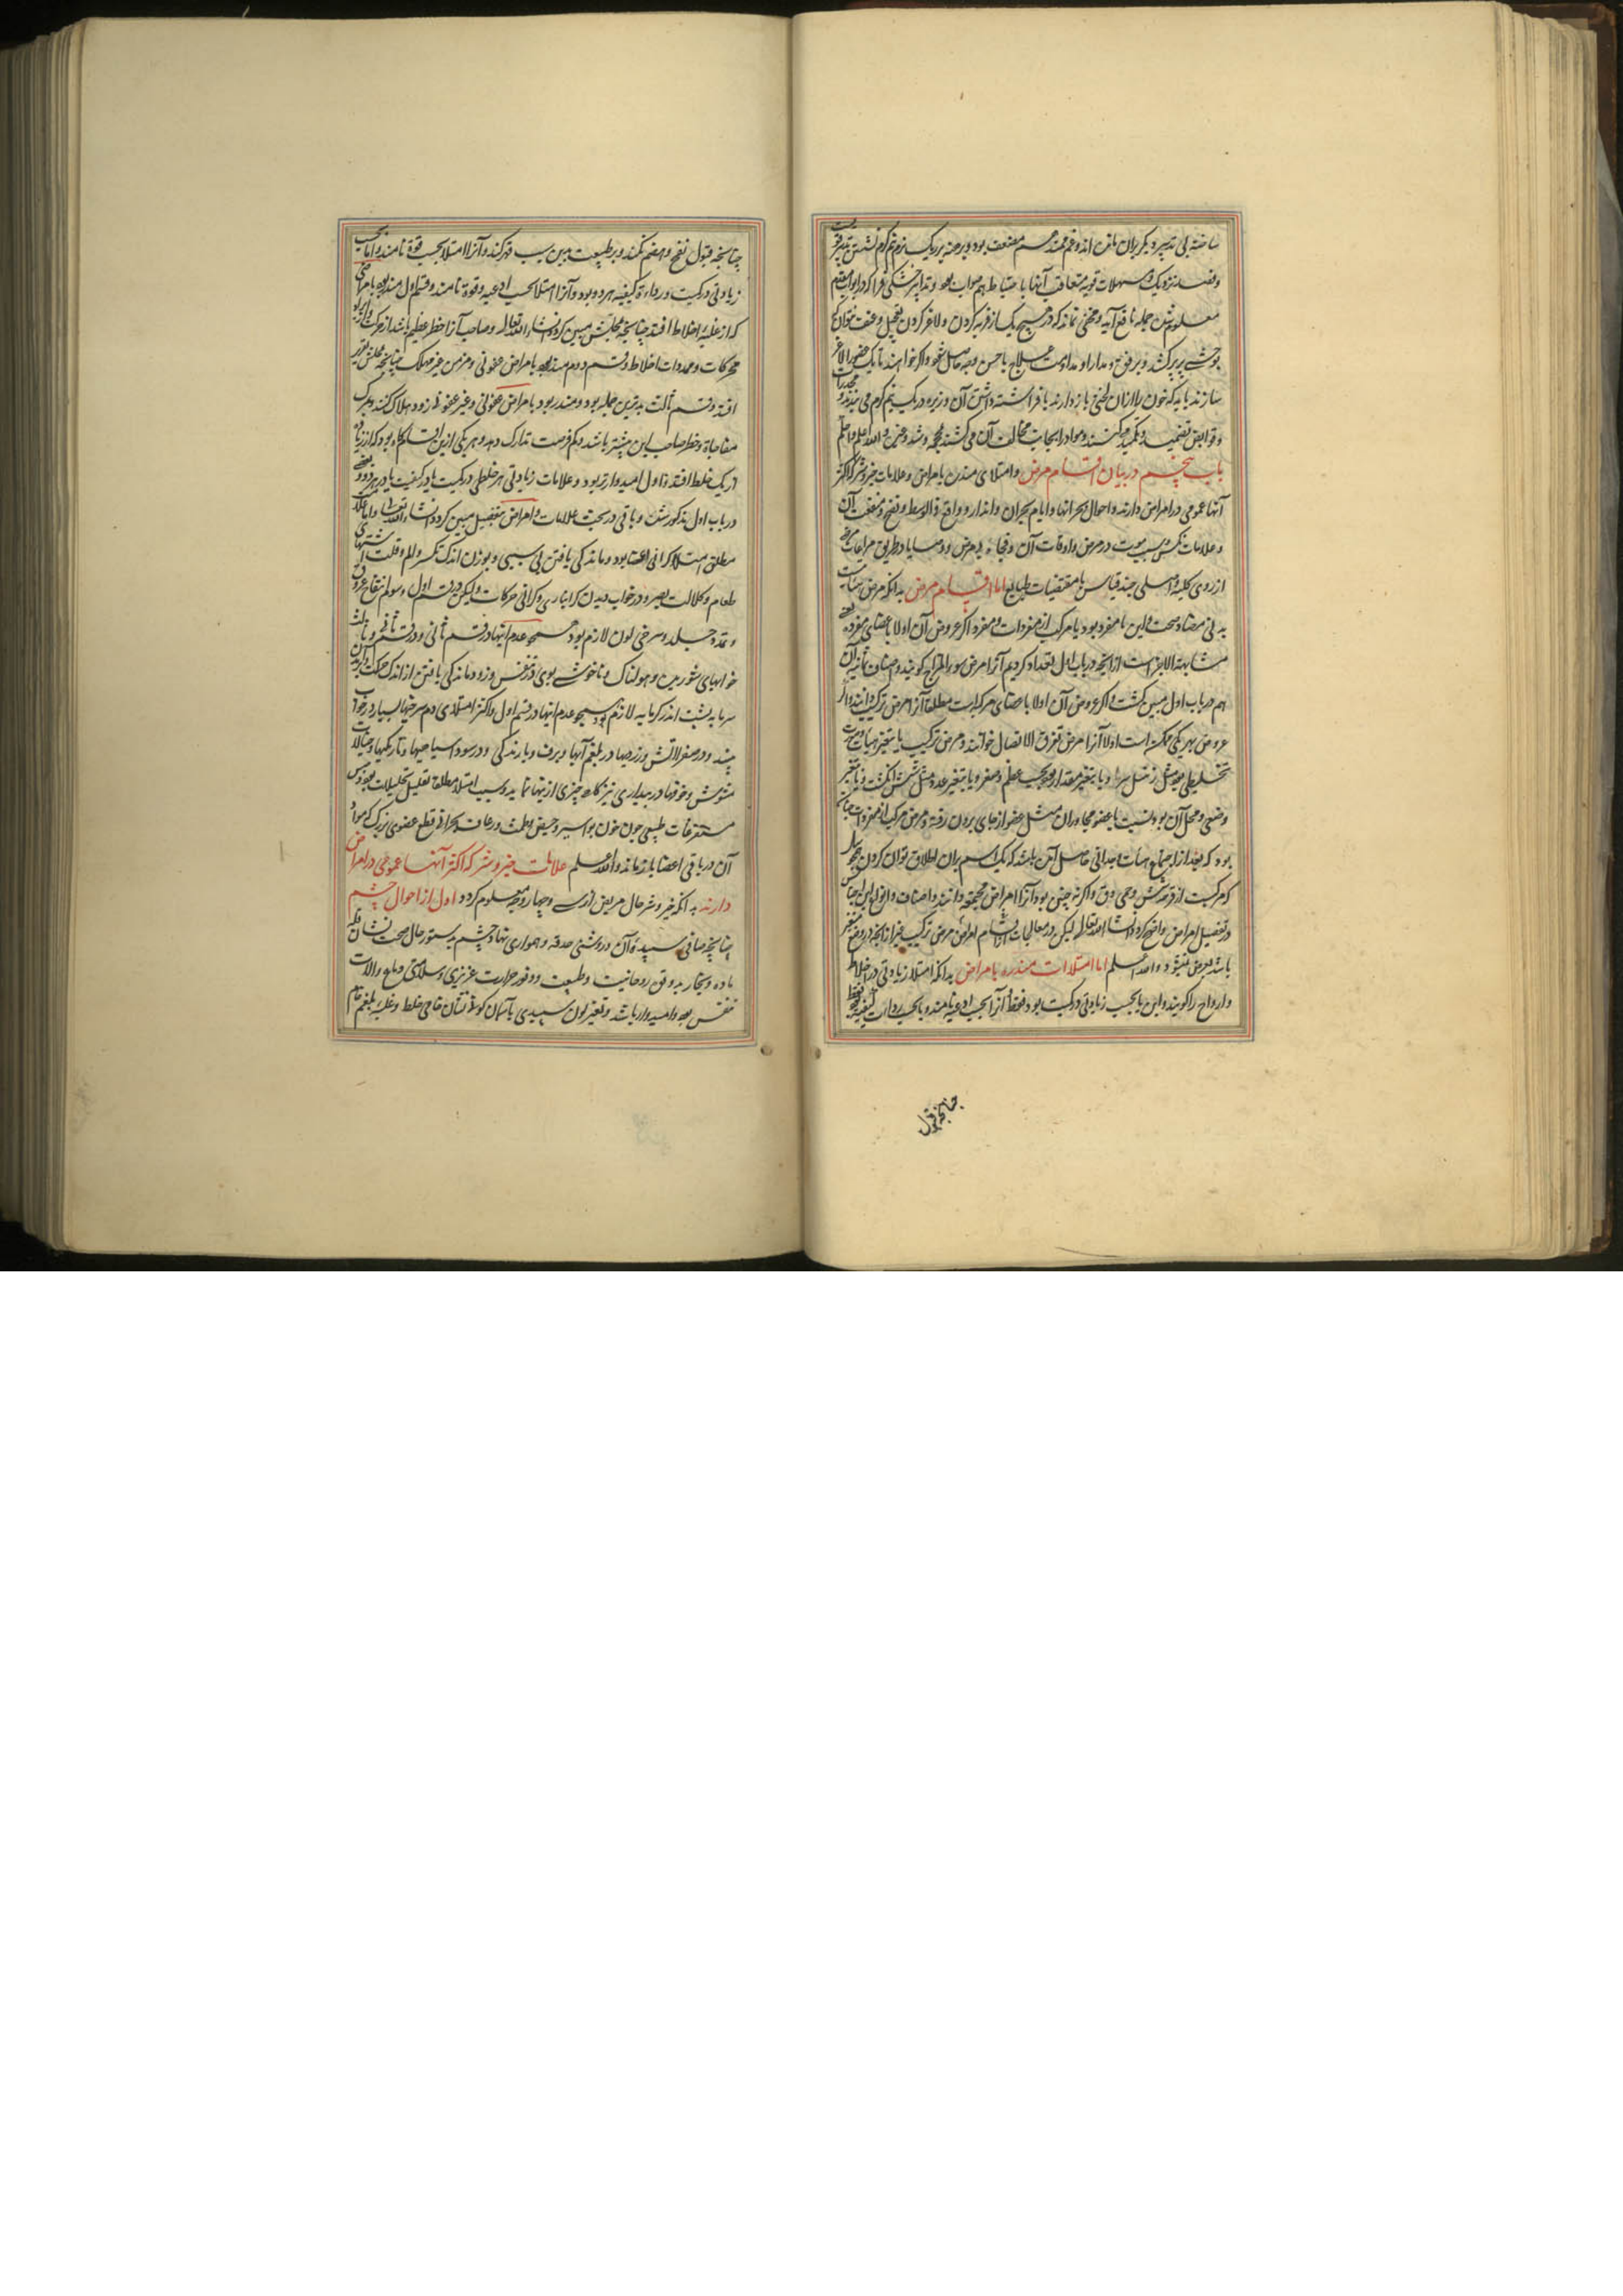 ساخته بی تدبیر دیگر بران ماندن اندوغم مند هم مضعف بود و برهنه بر ریک نرم گرم نشستن بقدر قوت
وقصد نزدیک و مسهلات قویه متعاقب آنها با حتیاط هم صواب بود و تدابیر خشکی فزا که در ابواب متقدم
معلوم شد جمله نافع آید و مخفی نماند که در هیچ یک از فربه کردن و لاغر کردن تعجیل و عنف نتوان کرد
برفق و مدارا و مداومت علاج باحسن وجه حاصل شود واگر خواهند تا یک عضو را لاغر
سازند باید که خون را ازان لختی باز دارند بافراشته داشتن آن
و قوابض تضمید و تکمید میکنند والله اعلم واحکم
باب پنجم در بیان اقسام مرض وامتلای منذرن بامراض وعلامات خیر و شر که اکثر
آنها عمومی در امراض دارند واحوال بحرانها وایام بحران وانذار و واقع فی الوسط و نضج و منفعت آن
وعلامات نکس و سبب موت در مرض واوقات آن و فجاءه بی مرض و وصایا در طریق مراعات مرضی
از روی کلیه واصلی چند قیاس با مقتضیات طبایع اما اقسام مرض بدانکه مرض هیئات
بدنی مضاد صحت واین یا مفرد بود یا مرکب از مفردات و مفرد اگر عروض آن اولا باعضای مفرده
متشابهة الاجزا است از آنچه در باب اول تعداد کردیم آنرا مرض سوء المزاج گویند واصناف ثمانیه آن
هم در باب اول مبین گشت واگر عروض آن اولا باعضای مرکبه است مطلقا آنرا مرض ترکیب دانند واگر
عروض بهر یکی ممکن است اولا آنرا مرض تفرق الاتصال خوانند و مرض ترکیب یا بتغیر هیات وصورت
تخطیطی بود مثل و یا بتغیر مقدار بود بحسب عظم و صغر و یا بتغیر عدد مثل شش انگشت و یا بتغیر
وضعی و محل آن بود بنسبت با عضو مجاوران مثل عضو از جای برون رفته و مرض مرکب از مفردات چنان
بود که بعد از اجتماع هیات وحدانی حاصل آمده باشد که یک اسم بران اطلاق توان کردن چون سل
که مرکبست از قرحه شش و حمی دق واگر نه چنین بود آنرا امراض مجتمعه دانند واصناف وانواع این اجناس
در تفصیل امراض واضح گردد انشاء الله تعالی لیکن در معالجات اقسام امراض مرض ترکیب غیر از آنچه در وضع متغیر
باشد متعرض نمیشود والله اعلم اما امتلاات منذره بامراض بدانکه امتلا زیادتی در اخلاط
وارواح را گویند واین یا بحسب زیادتی در کمیت بود فقط آنرا بحسب اوعیه نامند و یا بحسب رداءت کیفیت بود فقط
چنانچه قبول
چنانچه قبول نضج و هضم نکند و بر طبیعت بدین سبب قهر کند و آنرا امتلا بحسب قوة نامند و اما بحسب
زیادتی در کمیت و رداءة کیفیه هر دو بود و آنرا امتلا بحسب اوعیه و قوة نامند و قسم اول منذر بود بامراضی
که از غلبه اخلاط افتد چنانچه محلش مبین گردد انشاء الله تعالی و صاحب آنرا خطر عظیم باشد از حرکت
محرکات و ممددات اخلاط و قسم دوم منذر بود بامراض عفونی و مزمن غیر مهلک چنانچه محلش تقریر
افتد و قسم ثالث بدترین جمله بود و منذر بود بامراض عفونی و غیر عفونی زود هلاک کنند و بمرک
مفاجاة و خطر صاحب این بیشتر باشد و کم فرصت تدارک دهد و هر یکی ازین اقسام گاه بود که از زیاده
از یک خلط افتد و اول امیدوارتر بود و علامات زیادتی هر خلطی در کمیت یا در کیفیت یا در هر دو بعضی
در باب اول مذکور شد و باقی در بحث علامات و امراض بتفصیل مبین گردد انشاء الله تعالی واما علامت
مطلق امتلا گرانی اعضا بود و ماندگی یافتن بی سببی و بوزن اندک تکسر والم و قلت اشتهای
طعام و کلالت بصر و در خواب دیدن گرانباری و گرانی حرکات ولیکن در قسم اول انتفاخ عروق
و تمدد جلد و سرخی لون لازم بود همچو عدم اینها در قسم ثانی و در قسم ثانی و ثالث
خوابهای شوریده و هولناک و ناخوشی بوی در نفس و زود ماندگی یافتن از اندک حرکت
سرما به پشت اندر گرمابه لازم بود همچو عدم اینها در قسم اول و اکثر امتلای دم سرخیها بسیار در خواب
بیند و در صفرا آتش و زردیها و در بلغم آبها و برف و بارندگی و در سودا سیاهیها و تاریکیها و خیالات
مشوش و خوفها در بیداری نیز گاه چیزی از اینها نماید و سبب امتلا مطلقا تقلیل تحلیلات بود و حبس
مستفرغات طبیعی چون خون بواسیر و حیض و طمث و رعاف و بحران و قطع عضوی بزرگ که مواد
آن در باقی اعضا باز ماند والله اعلم علامات خیر و شر که اکثر آنها عمومی در امراض
دارند بدانکه خیر و شر حال مریض از سی و چهار وجه معلوم گردد اول از احوال چشم
چنانچه صافی سپیده آن و روشنی حدقه و همواری نهاد چشم بدستور حال صحت نشان قلت
ماده و بخار بد و قوت روحانیت و طبیعت و وفور حرارت غریزی و سلامتی دماغ والات
تنفس بود و امیدوار باشد و تغیر لون سپیدی بآسمان گونه نشان خامی خلط و غلبه بلغم خام